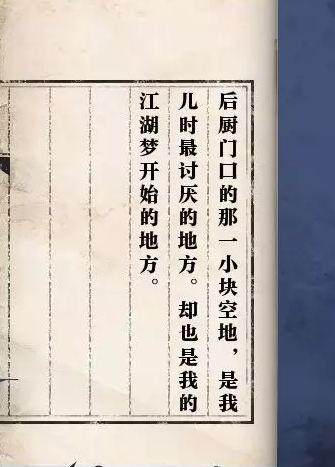 后厨门口的那一小块空地，是我
儿时最讨厌的地方。却也是我的
江湖梦开始的地方。